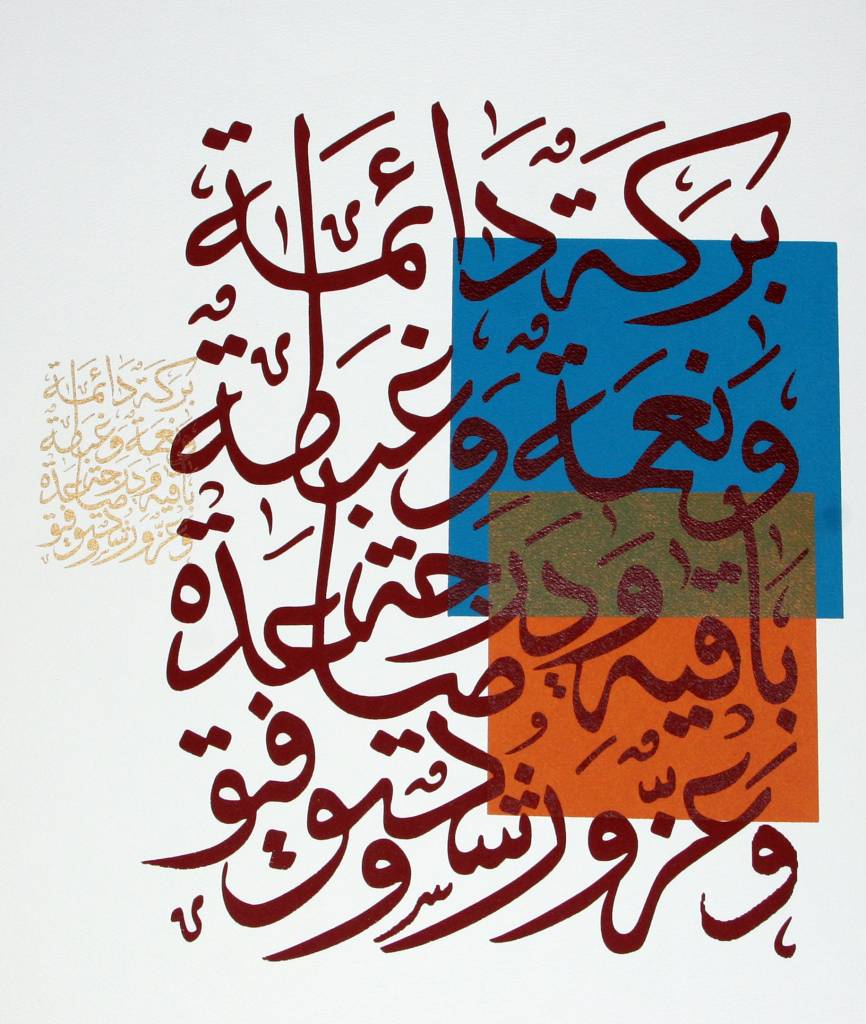 بركة دائمة
ونعمة وغبطة
باقية ودرجة صاعدة
وعز ورشد وتوفيق
بركة دائمة
ونعمة وغبطة
باقية ودرجة صاعدة
وعز ورشد وتوفيق